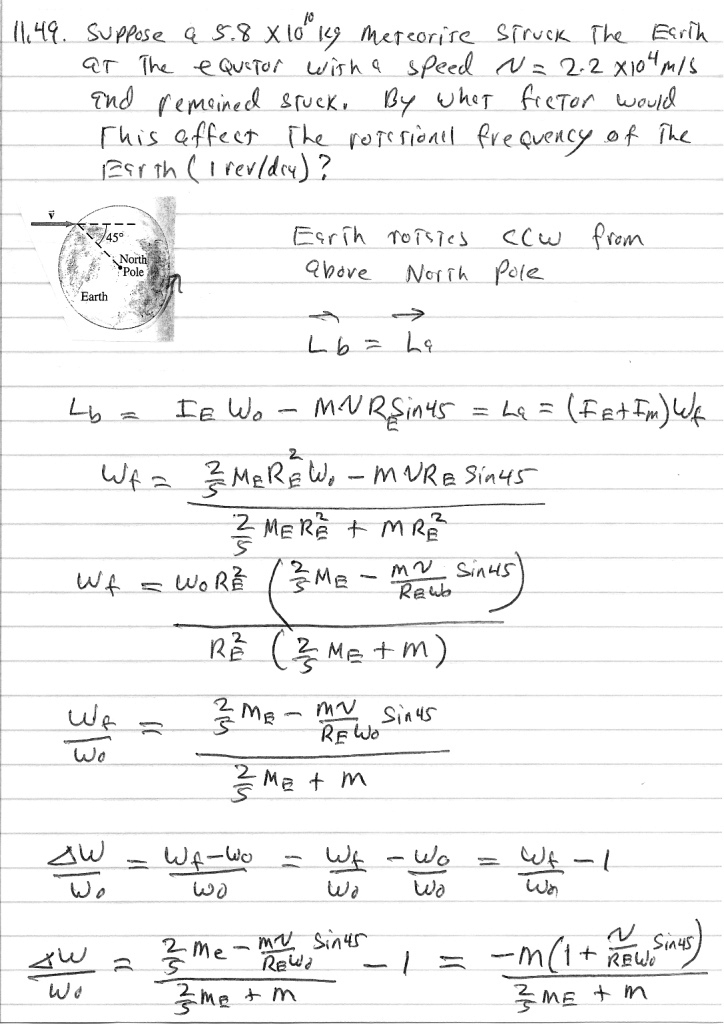 11.49. Suppose a 5.8 X 10^10 kg meteorite struck the Earth
at the equator with a speed v = 2.2 x 10^4 m/s
and remained stuck. By what factor would
this affect the rotational frequency of the
Earth (1 rev/day)?
v⃗
45°
North
Pole
Earth
Earth rotates CCW from
above North Pole
L⃗b = L⃗a
Lb = IE ω0 - mvRE Sin45 = La = (IE + Im)ωf
ωf = (2/5 ME RE^2 ω0 - mvRE Sin45) / (2/5 ME RE^2 + mRE^2)
ωf = ω0 RE^2 (2/5 ME - mv/(RE ω0) Sin45) / RE^2 (2/5 ME + m)
ωf/ω0 = (2/5 ME - mv/(RE ω0) Sin45) / (2/5 ME + m)
Δω/ω0 = (ωf - ω0)/ω0 = ωf/ω0 - ω0/ω0 = ωf/ω0 - 1
Δω/ω0 = (2/5 Me - mv/(RE ω0) Sin45) / (2/5 ME + m) - 1 = -m(1 + v/(RE ω0) Sin45) / (2/5 ME + m)